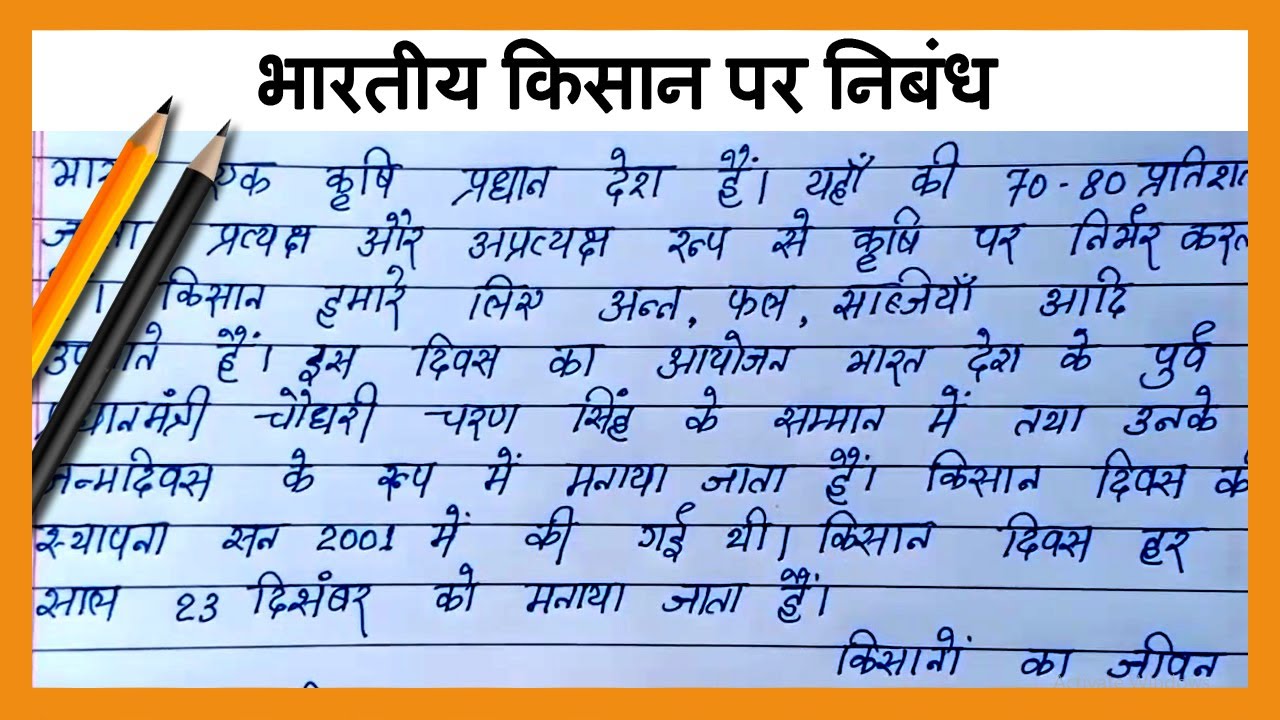 भारतीय किसान पर निबंध
एक कृषि प्रधान देश हैं। यहाँ की 70-80 प्रतिशत
प्रत्यक्ष और अप्रत्यक्ष रूप से कृषि पर निर्भर करत
। किसान हमारे लिए अन्न, फल, सब्जियाँ आदि
हैं। इस दिवस का आयोजन भारत देश के पुर्व
चौधरी चरण सिंह के सम्मान में तथा उनके
जन्मदिवस के रूप में मनाया जाता हैं। किसान दिवस की
स्थापना सन 2001 में की गई थी। किसान दिवस हर
साल 23 दिसंबर को मनाया जाता हैं।
किसानों का जीवन